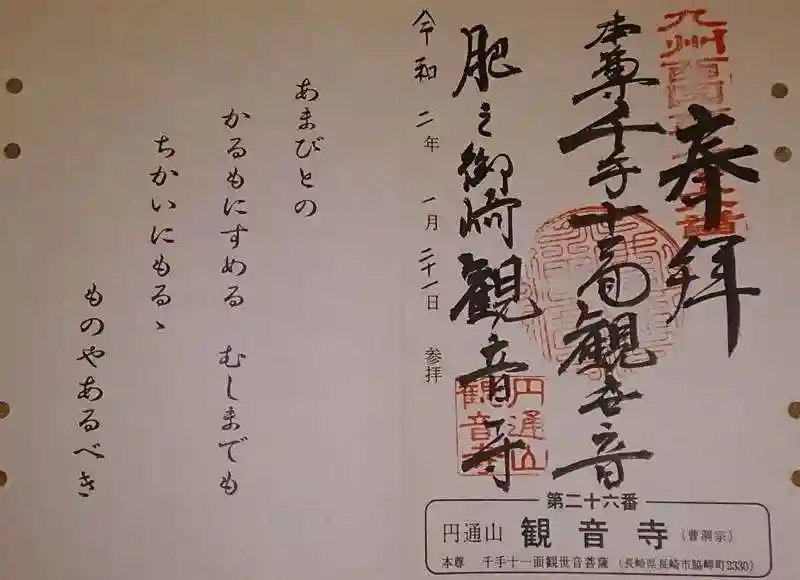 九州西国
奉拝
本尊千手十一面観世音
肥之御崎観音寺
円通山
観音寺
令和二年一月二十一日 参拝
あまびとの
かるもにすめる むしまでも
ちかいにもるゝ
ものやあるべき
第二十六番
円通山 観音寺 (曹洞宗)
本尊 千手十一面観世音菩薩 (長崎県長崎市脇岬町2330)